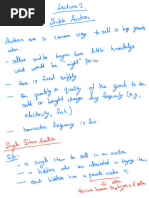 Lecture 2
Simple Auctions
Auctions are a common way to sell or buy goods
when:
- sellers and/or buyers have little knowledge
what would be "right" price
- there is fixed supply
- the quantity & quality of the goods to be
sold or bought changes very frequently (e.g.
electricity, fish)
- transaction frequency is low
Single Item Auction
- a single item to sell in an auction
- n bidders who are interested in buying item
- each bidder has a private value